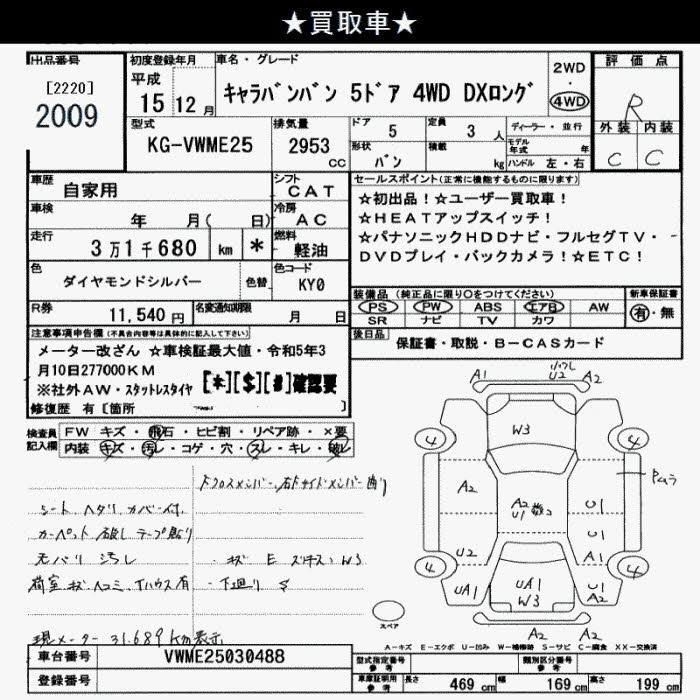 ★買取車★
出品番号
[2220]
2009
初度登録年月
平成
15年12月
車名・グレード
キャラバンバン 5ドア 4WD DXロング
2WD
・
4WD
評価点
R
外装 内装
C C
型式
KG-VWME25
排気量
2953
CC
ドア
5
定員
3 人
形状
バン
積載
kg
ディーラー・並行
モデル
年式
年
ハンドル 左・右
車歴
自家用
シフト
CAT
車検
年 月( 日)
冷房
AC
走行
3万1千680 km *
燃料
軽油
色
ダイヤモンドシルバー
色替
色コード
KY0
R券
11,540円
名変通知期限
月 日
セールスポイント(正常に機能するものに限ります)
☆初出品!☆ユーザー買取車!
☆HEATアップスイッチ!
☆パナソニックHDDナビ・フルセグTV・
DVDプレイ・バックカメラ!☆ETC!
装備品(純正品に限り○をつけてください)
PS PW ABS エアB AW
SR ナビ TV カワ
新車保証書
有・無
後日品
保証書・取説・B-CASカード
注意事項申告欄(不具合内容等は具体的に記入して下さい)
メーター改ざん ☆車検証最大値・令和5年3
月10日277000KM
※社外AW・スタットレスタイヤ
[*][$][#]確認要
修復歴 有[箇所 ]
検査員
記入欄
FW キズ・飛石・ヒビ割・リペア跡・×要
内装 キズ・汚レ・コゲ・穴・スレ・キレ・破レ
シート ヘタリ カバー付
カーペット 破し テープ貼り
天バリ 汚レ
荷室 キズ ヘコミ
・キズ E W3
・下廻り S
現メーター 31,689Km表示
A1
U2
A2
W3
4
4
A2
A2
U1
U1
U1
A1
U2
4
4
UA1
UA1
W3
U1
A2
A2
A2
スペア
A-キズ E-エクボ U-凹み W-補修跡 S-サビ C-腐食 XX-交換済
車台番号
VWME25030488
登録番号
型式指定番号
参考
類別区分番号
参考
車庫証明用
参考
長さ 469 cm
幅 169 cm
高さ 199 cm